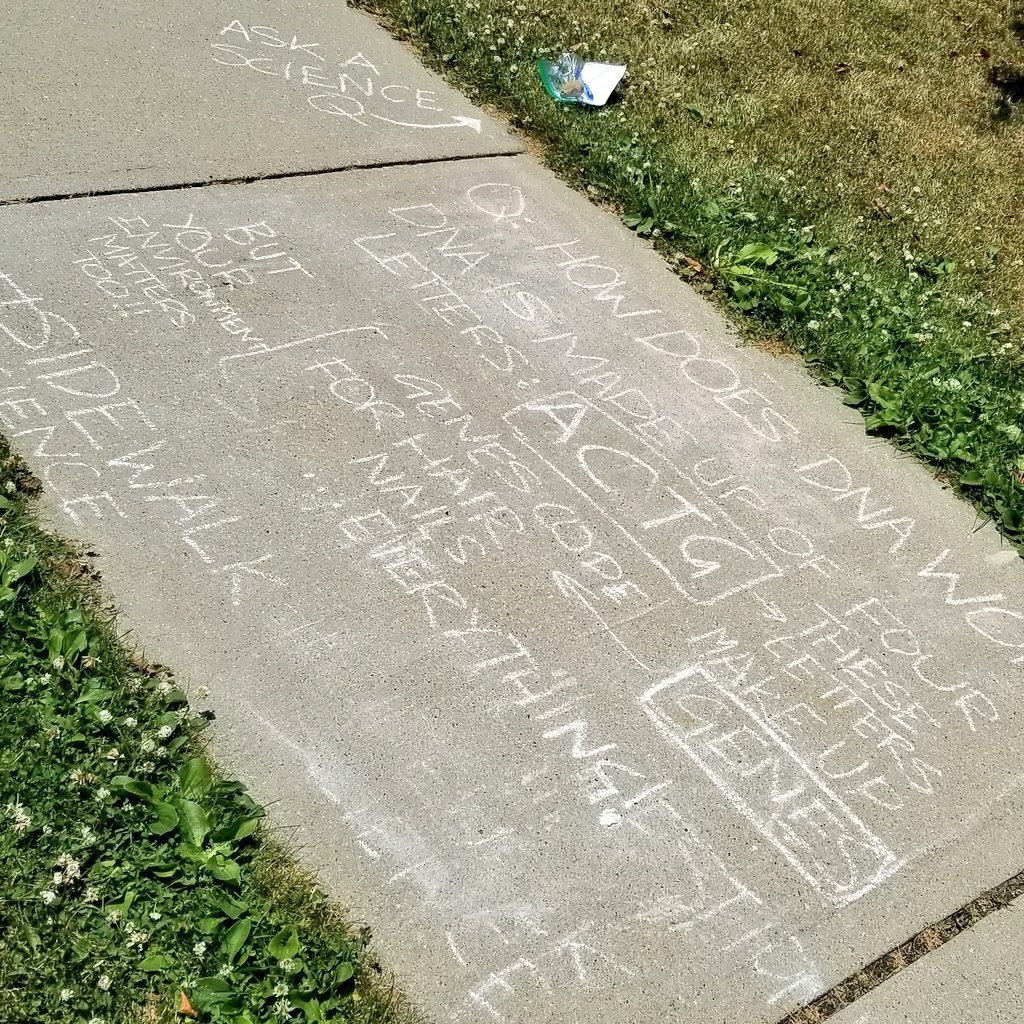 ASK A
SCIENCE
Q
Q. HOW DOES DNA
DNA IS MADE UP OF FOUR
LETTERS:
ACTG
THESE
LETTERS
MAKE UP
GENES
GENES CODE
FOR HAIR
NAILS
...EVERYTHING!
BUT
YOUR
ENVIRONMENT
MATTERS
TOO!!
SIDEWALK